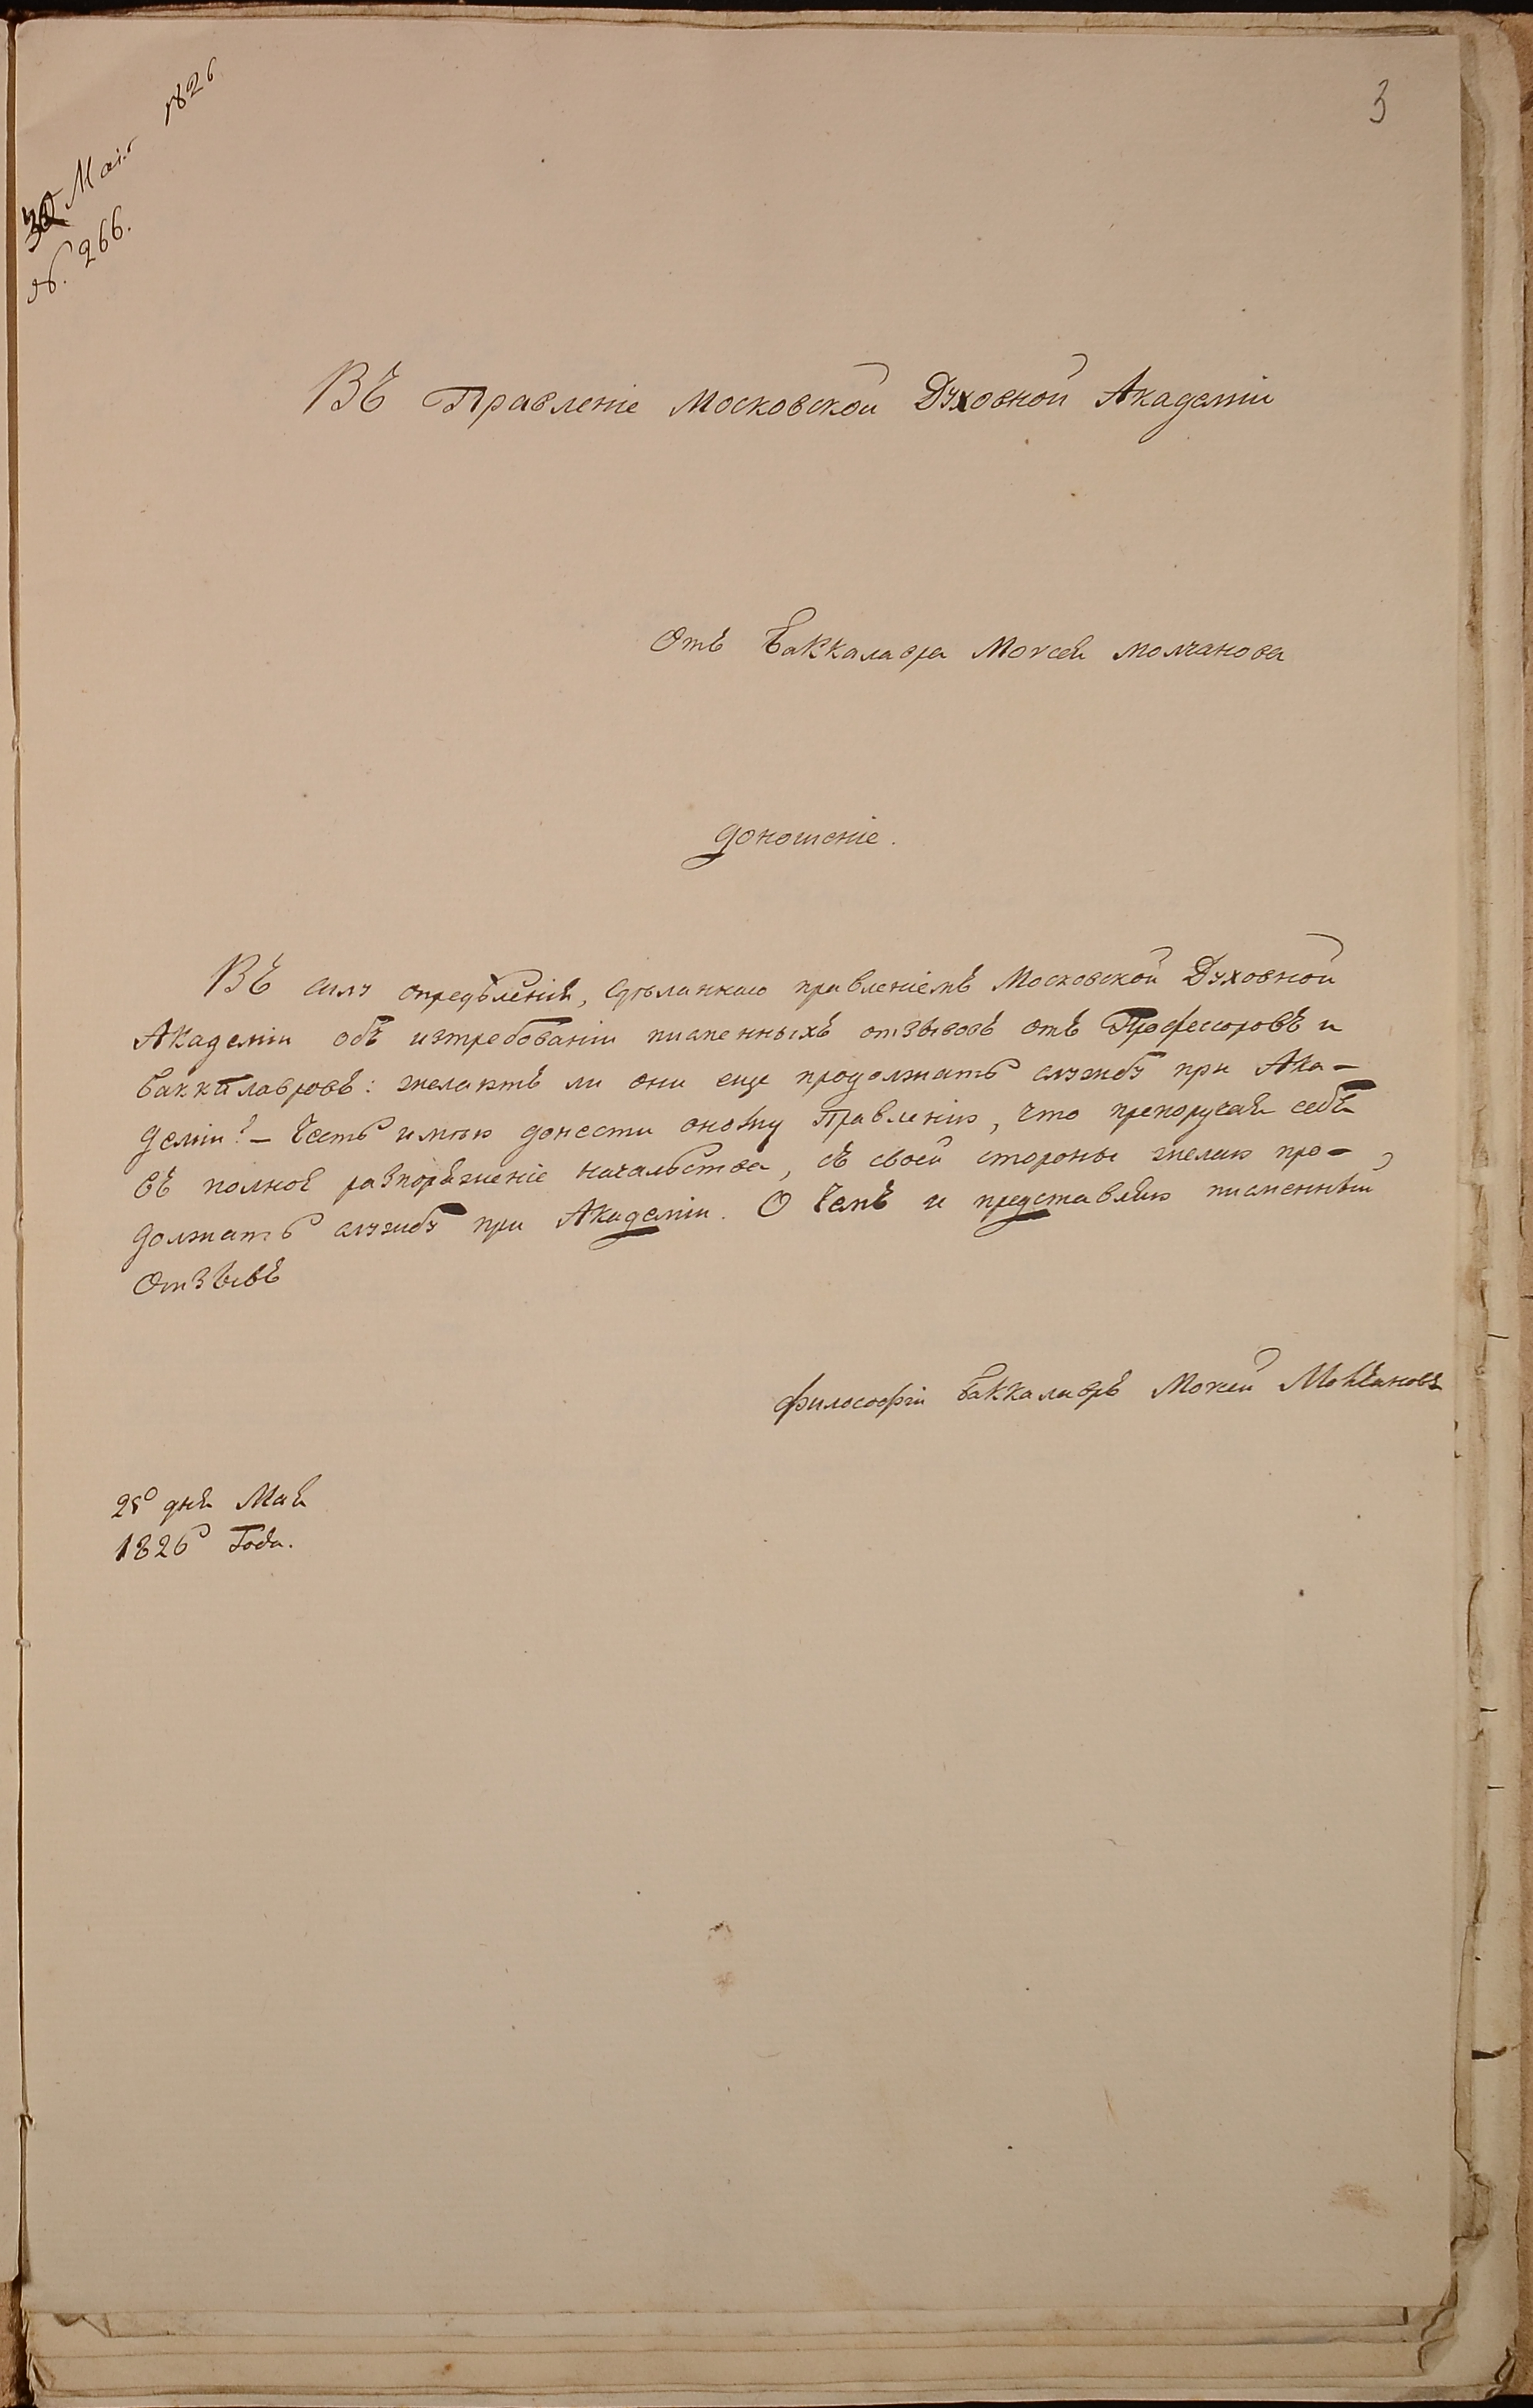 30 Маія 1826
№. 266.
3
Въ Правленіе Московской Духовной Академіи
Отъ Баккалавра Моисея Молчанова
доношеніе.
Въ силу опредѣленія, сдѣланнаго правленіемъ Московской Духовной
Академіи объ изтребованіи писменныхъ отзывовъ отъ Профессоровъ и
Баккалавровъ: желаютъ ли они еще продолжать службу при Ака-
деміи? – Честь имѣю донести оному Правленію, что препоручая себя
въ полное разпоряженіе начальства, съ своей стороны желаю про-
должать службу при Академіи. О Чемъ и представляю писменный
Отзывъ
философіи Баккалавръ Моисей Молчановъ
25 дня Мая
1826 Года.